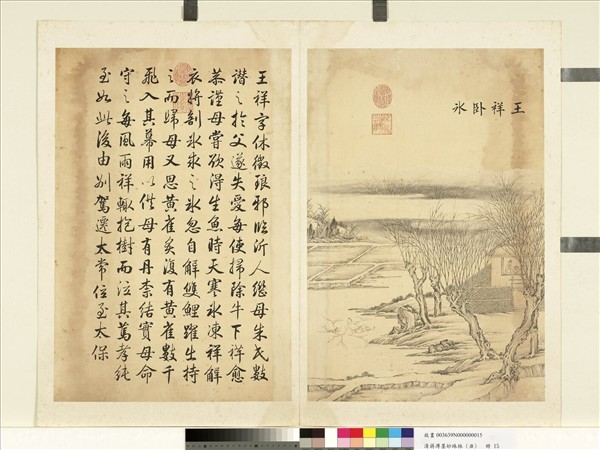 王祥卧冰
王祥字休徵琅邪臨沂人繼母朱氏數
譖之於父遂失愛每使掃除牛下祥愈
恭謹母嘗欲得生魚時天寒冰凍祥解
衣將剖冰求之冰忽自解雙鯉躍出持
之而歸母又思黃雀炙復有黃雀數十
飛入其幕用以供母有丹柰結實母命
守之每風雨祥輒抱樹而泣其篤孝純
至如此後由別駕遷太常位至太保
故畫 003639N000000015
清蔣溥墨妙珠林（丑） 冊 15